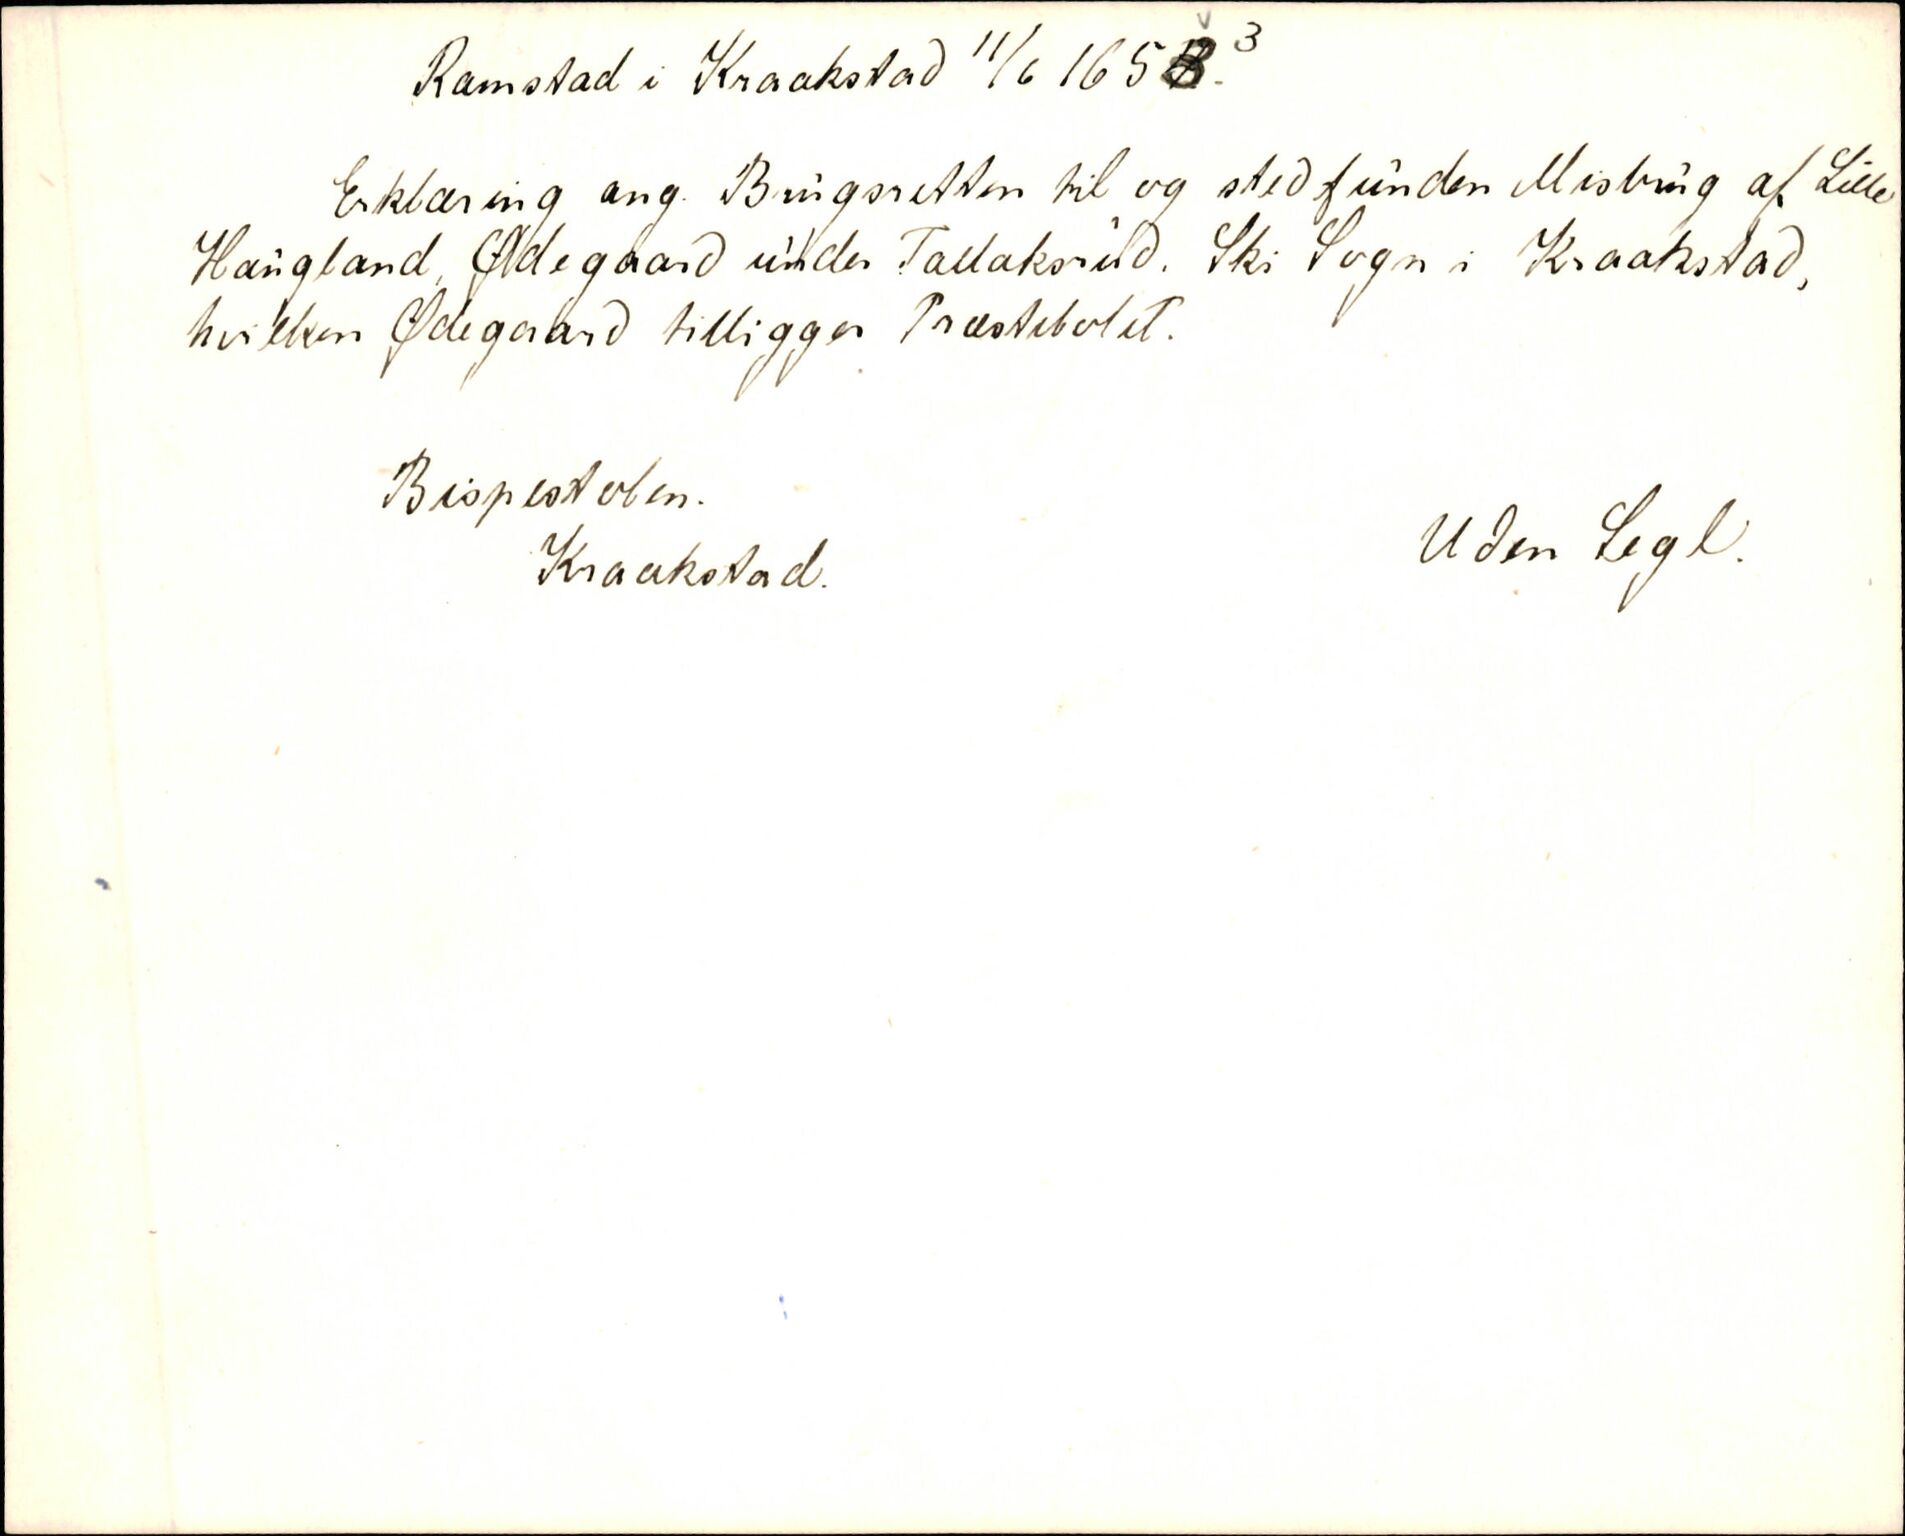 Ramstad i Kraakstad 11/6 1653.
Erklæring ang. Brugsretten til og stedfunden Misbrug af Lille
Haugland, Ødegaard under Tallaksrud. Ski Sogn i Kraakstad,
hvilken Ødegaard tilligger Præstebolet.
Bispestolen.
Kraakstad.
Uden Segl.